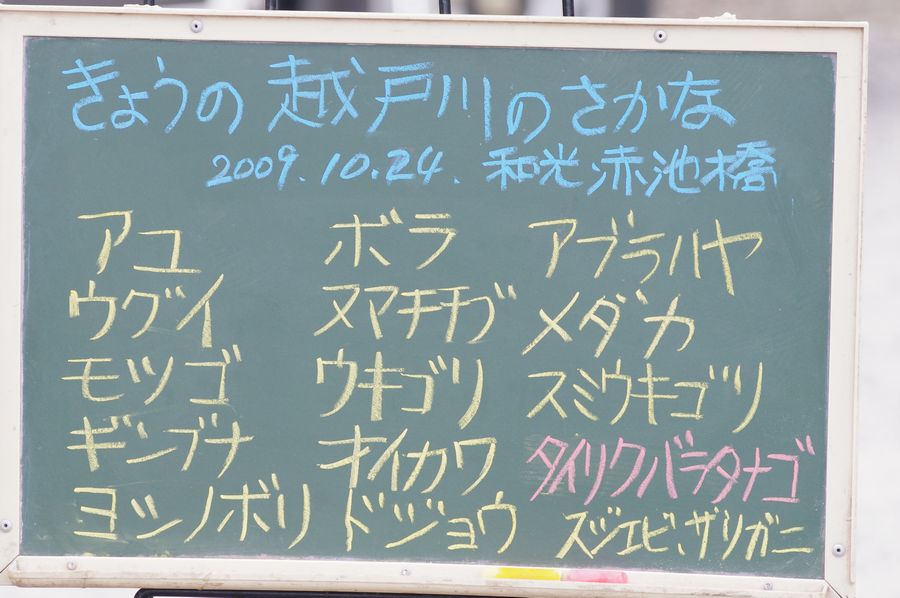 きょうの越戸川のさかな
2009.10.24. 和光赤池橋
アユ ボラ アブラハヤ
ウグイ ヌマチチブ メダカ
モツゴ ウキゴリ スミウキゴリ
ギンブナ オイカワ タイリクバラタナゴ
ヨシノボリ ドジョウ スジエビ、ザリガニ